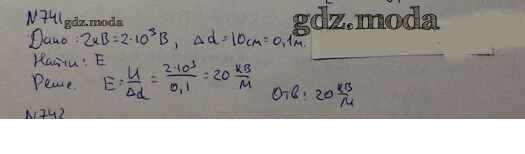 N741 gdz.moda
gdz.moda
Дано: 2кВ=2·10³В, Δd=10см=0,1м.
Найти: E
Реше. E=U/Δd=2·10³/0,1=20 кВ/м
Отв: 20 кВ/м
N742